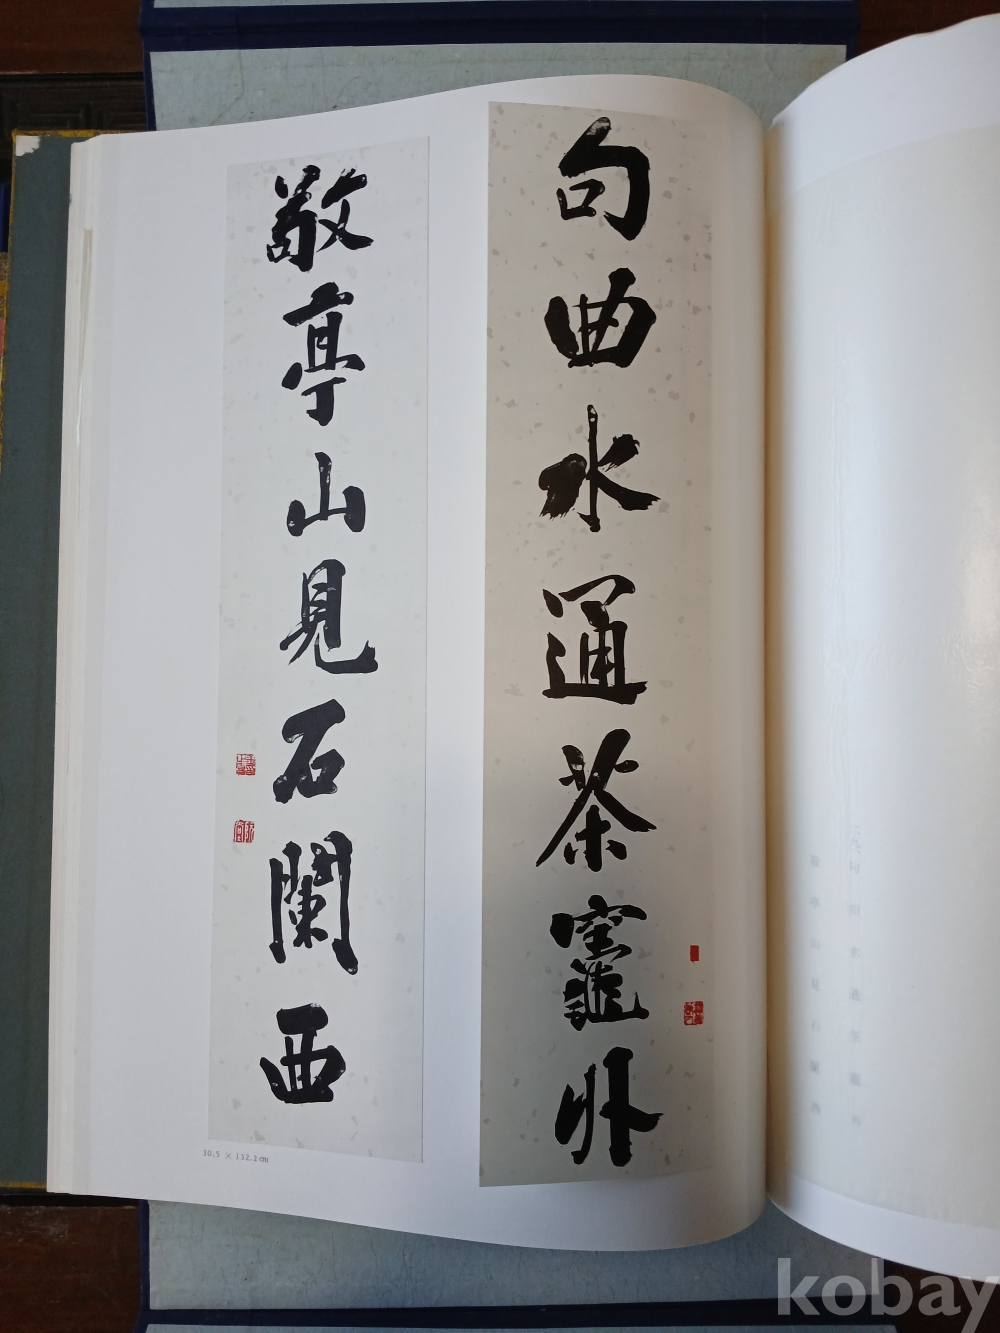 句曲水通茶竈外
敬亭山見石闌西
30.5 × 132.2cm
kobay